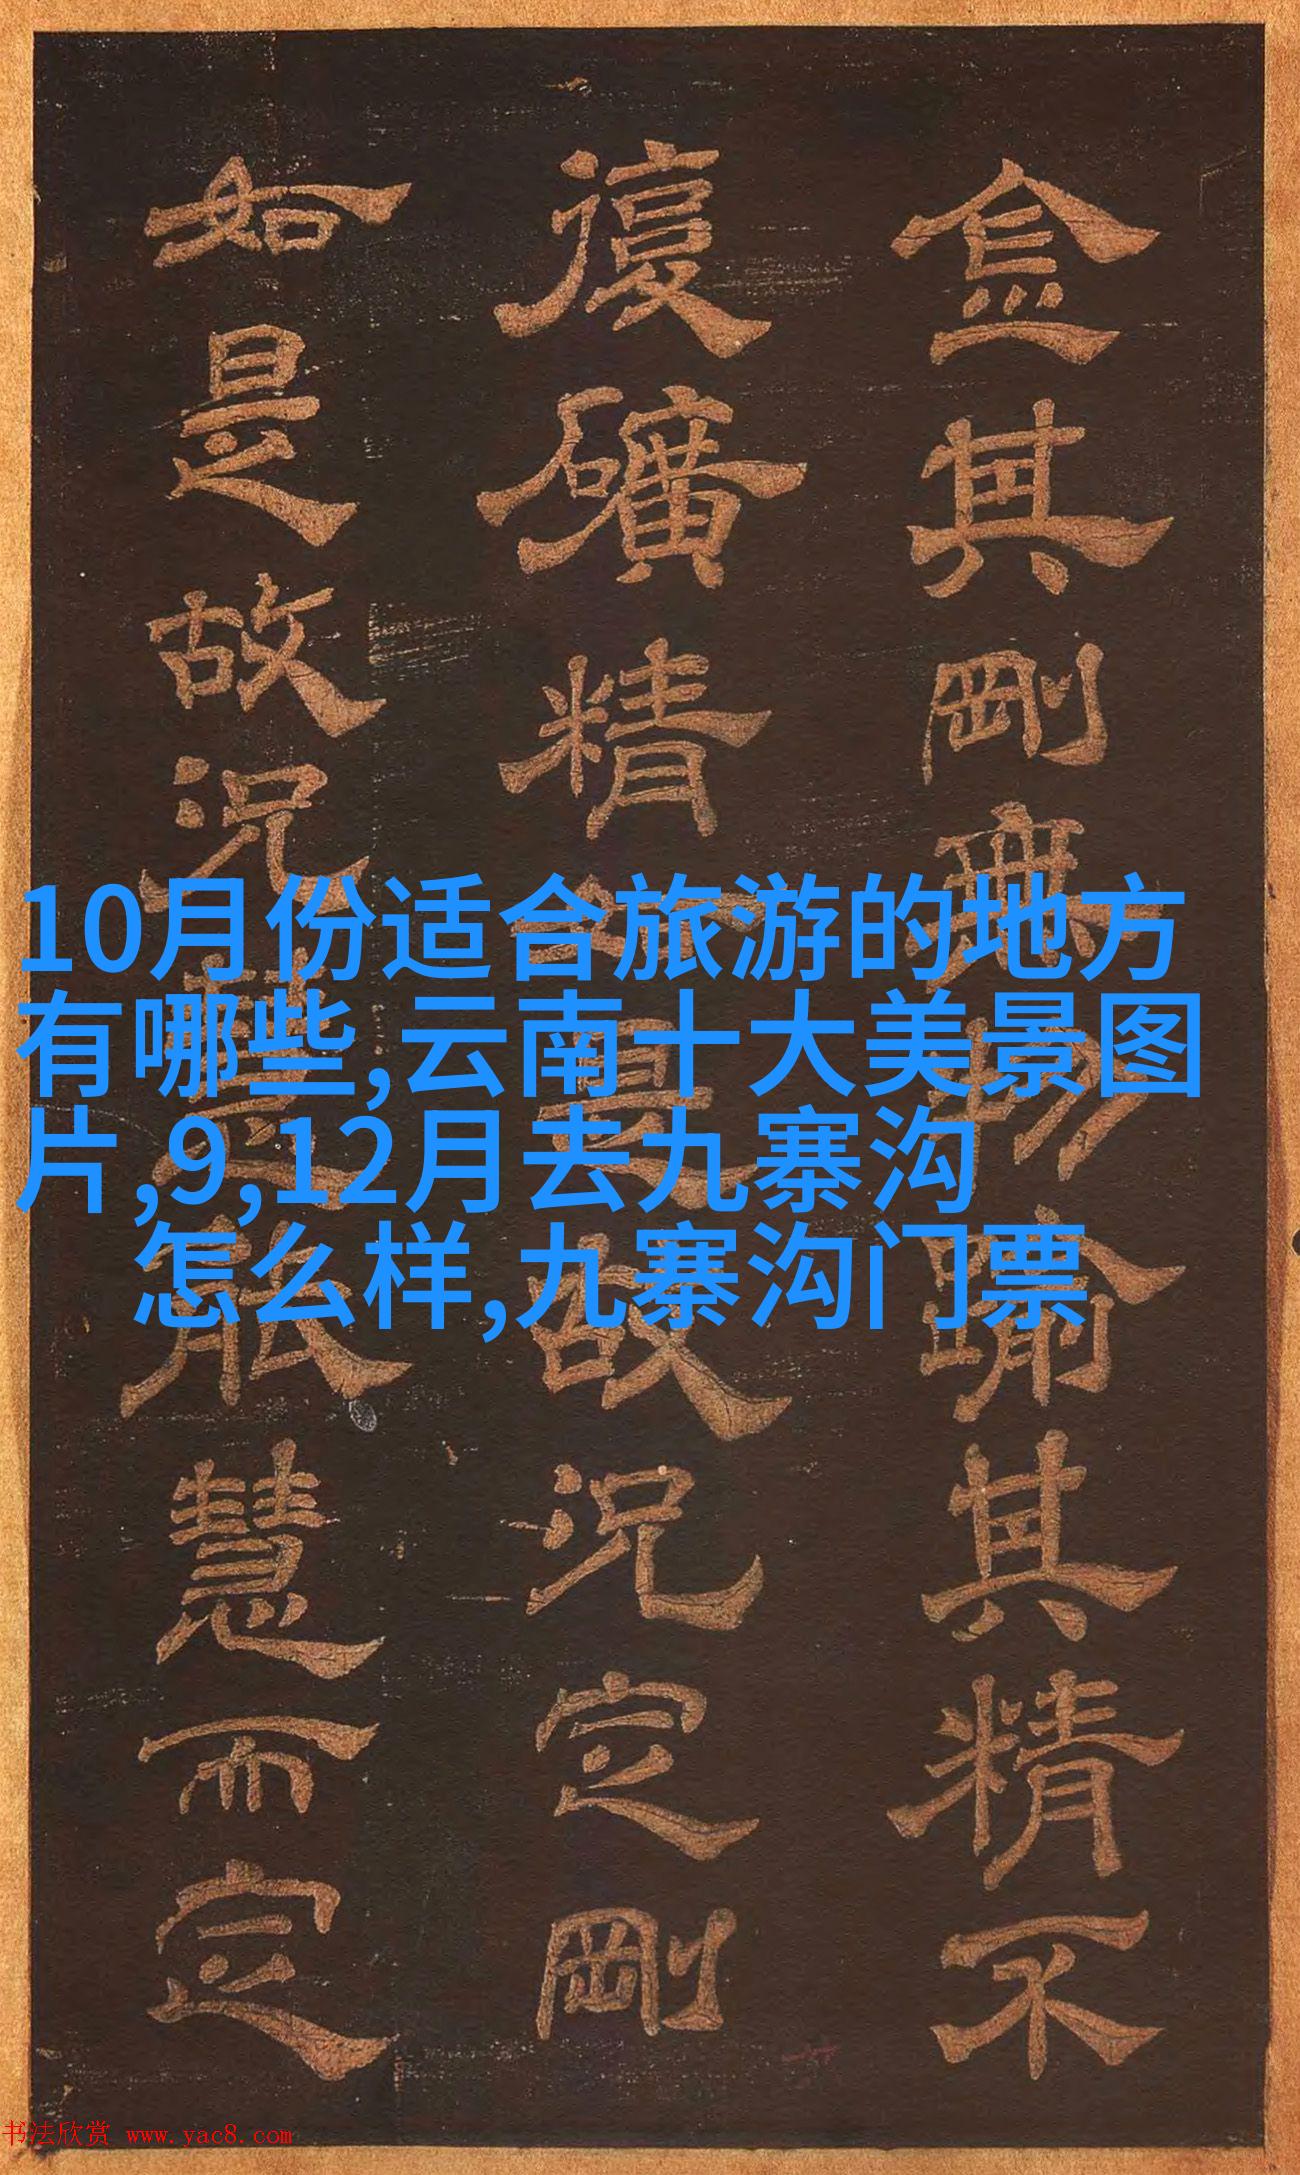 10月份适合旅游的地方
有哪些,云南十大美景图
片,9,12月去九寨沟
怎么样,九寨沟门票
金其剛無物喻其精不
復礦精金是故況定剛
如是故況慧是能慧而定
书法欣赏 www.yac8.com